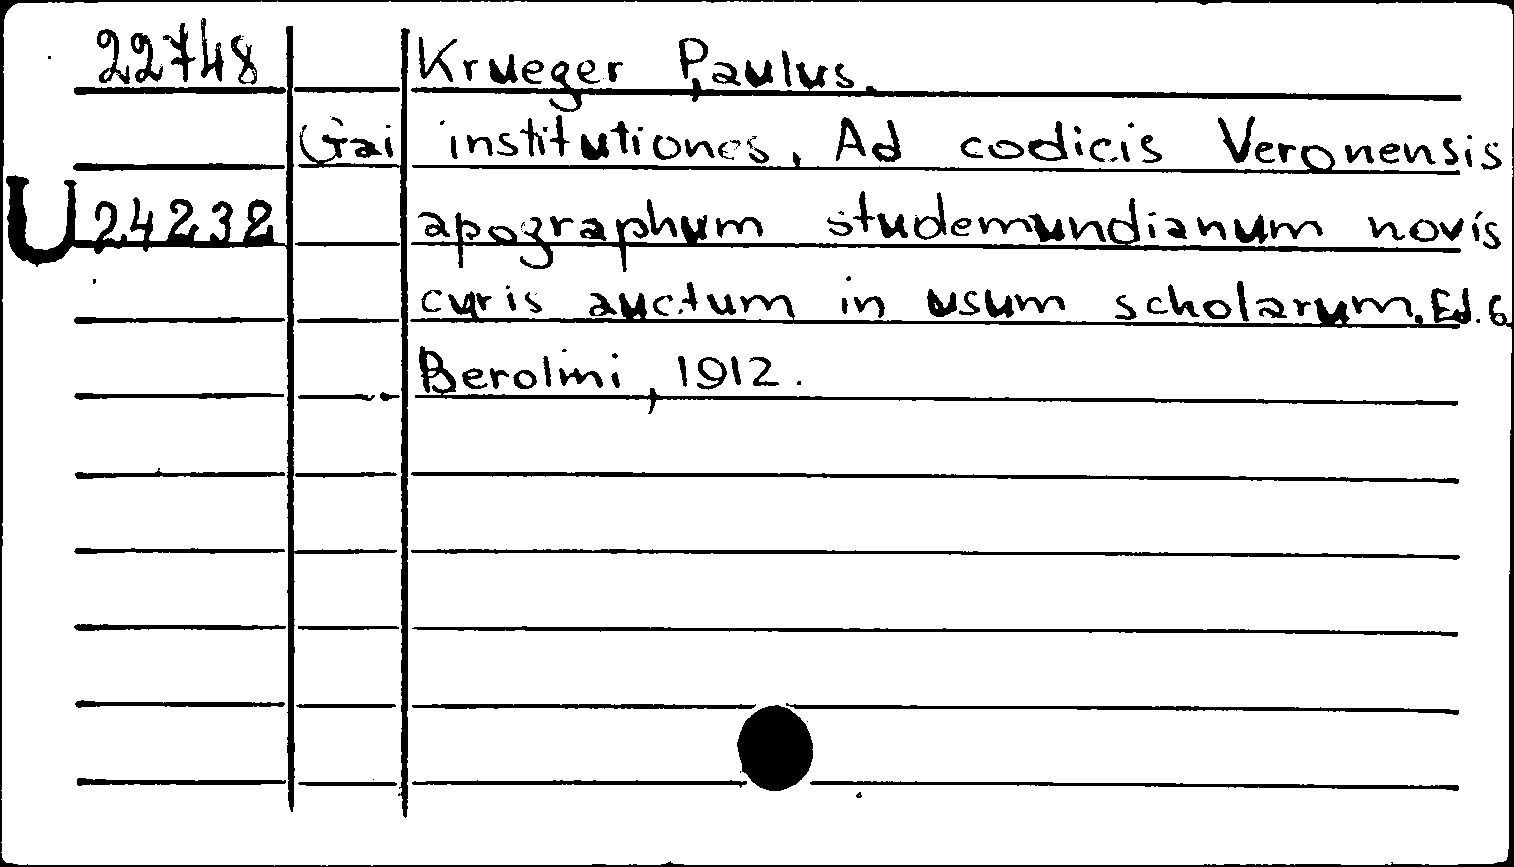 22748 Krueger Paulus.
Gai institutiones, Ad codicis Veronensis
U 24232 apographum studemundianum novis
curis auctum in usum scholarum. Ed. 6.
Berolini, 1912.